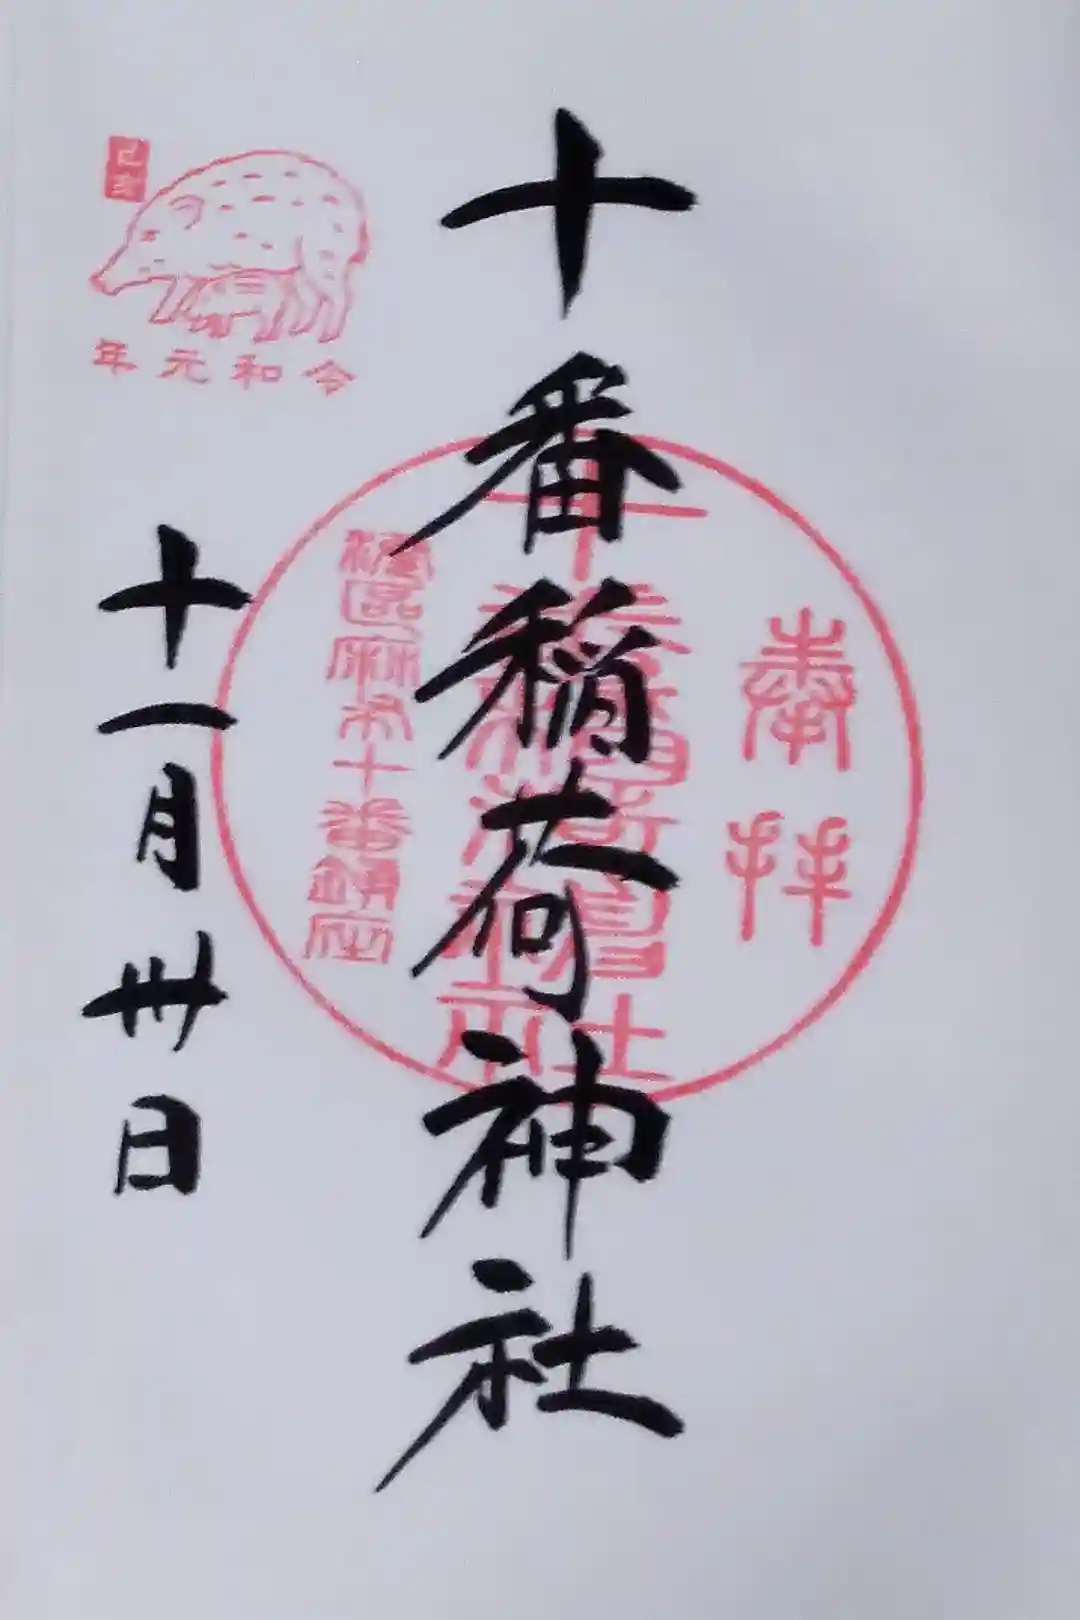 奉拝
十番稲荷神社
港区麻布十番鎮座
己亥
令和元年
十一月卅日